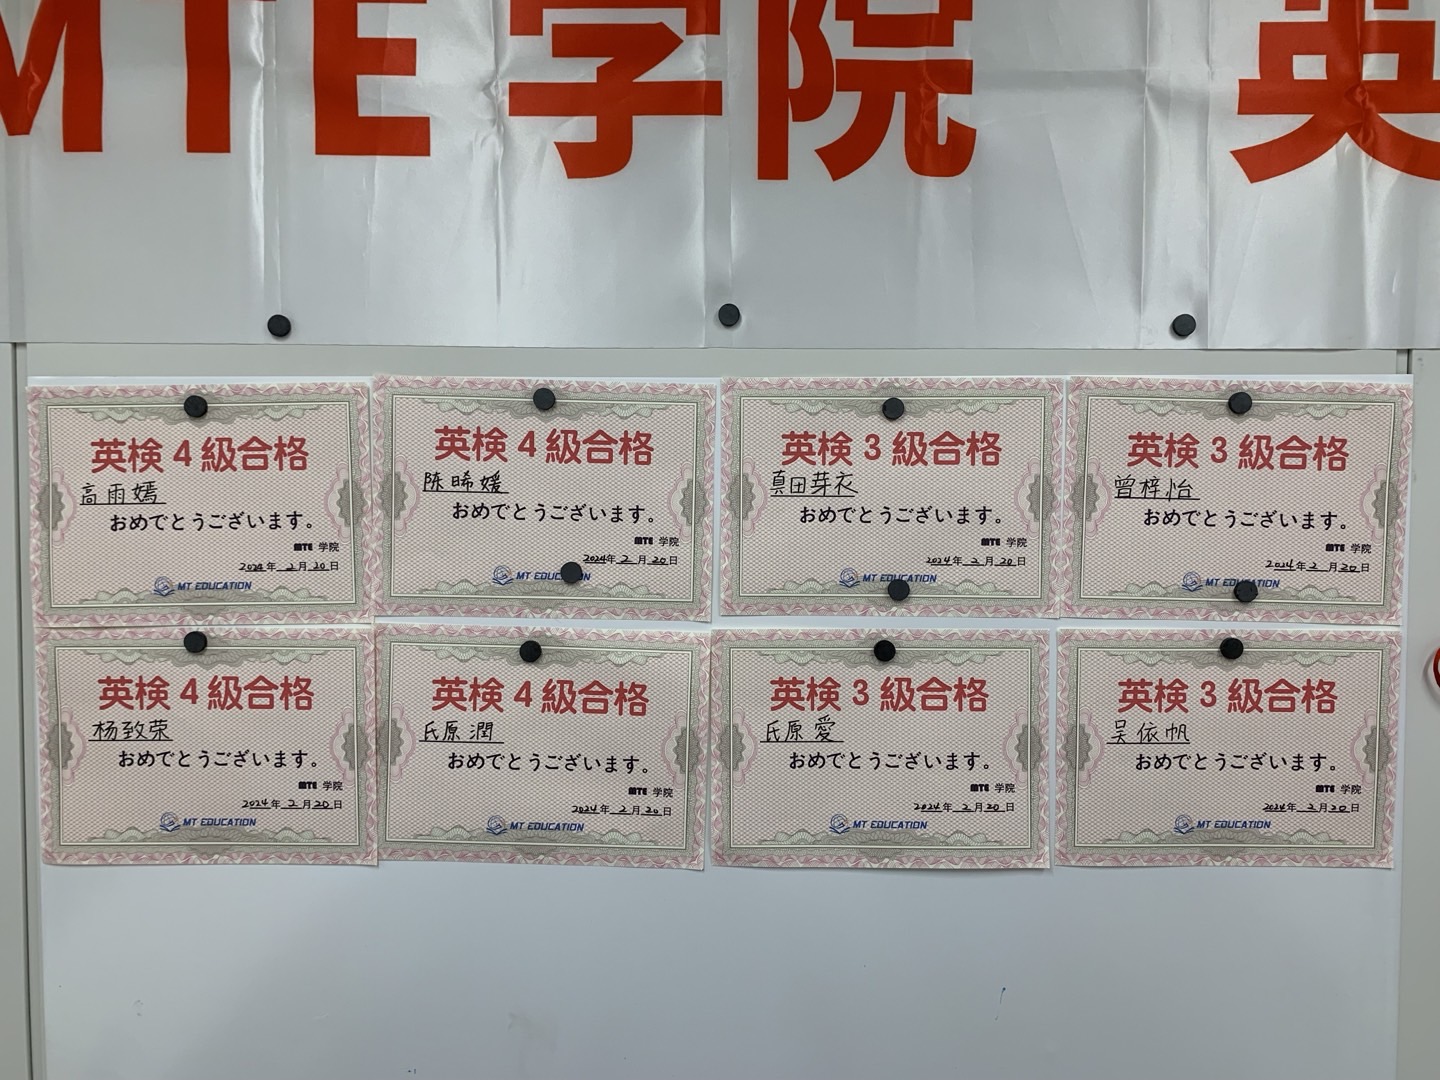 MTE学院 英
英検4級合格
高雨嫣
おめでとうございます。
MTE 学院
2024年 2月20日
MT EDUCATION
英検4級合格
陈晞媛
おめでとうございます。
MTE 学院
2024年 2月20日
MT EDUCATION
英検3級合格
真田芽衣
おめでとうございます。
MTE 学院
2024年 2月20日
MT EDUCATION
英検3級合格
曾梓怡
おめでとうございます。
MTE 学院
2024年 2月20日
MT EDUCATION
英検4級合格
杨致荣
おめでとうございます。
MTE 学院
2024年 2月20日
MT EDUCATION
英検4級合格
氏原潤
おめでとうございます。
MTE 学院
2024年 2月20日
MT EDUCATION
英検3級合格
氏原愛
おめでとうございます。
MTE 学院
2024年 2月20日
MT EDUCATION
英検3級合格
吴依帆
おめでとうございます。
MTE 学院
2024年 2月20日
MT EDUCATION